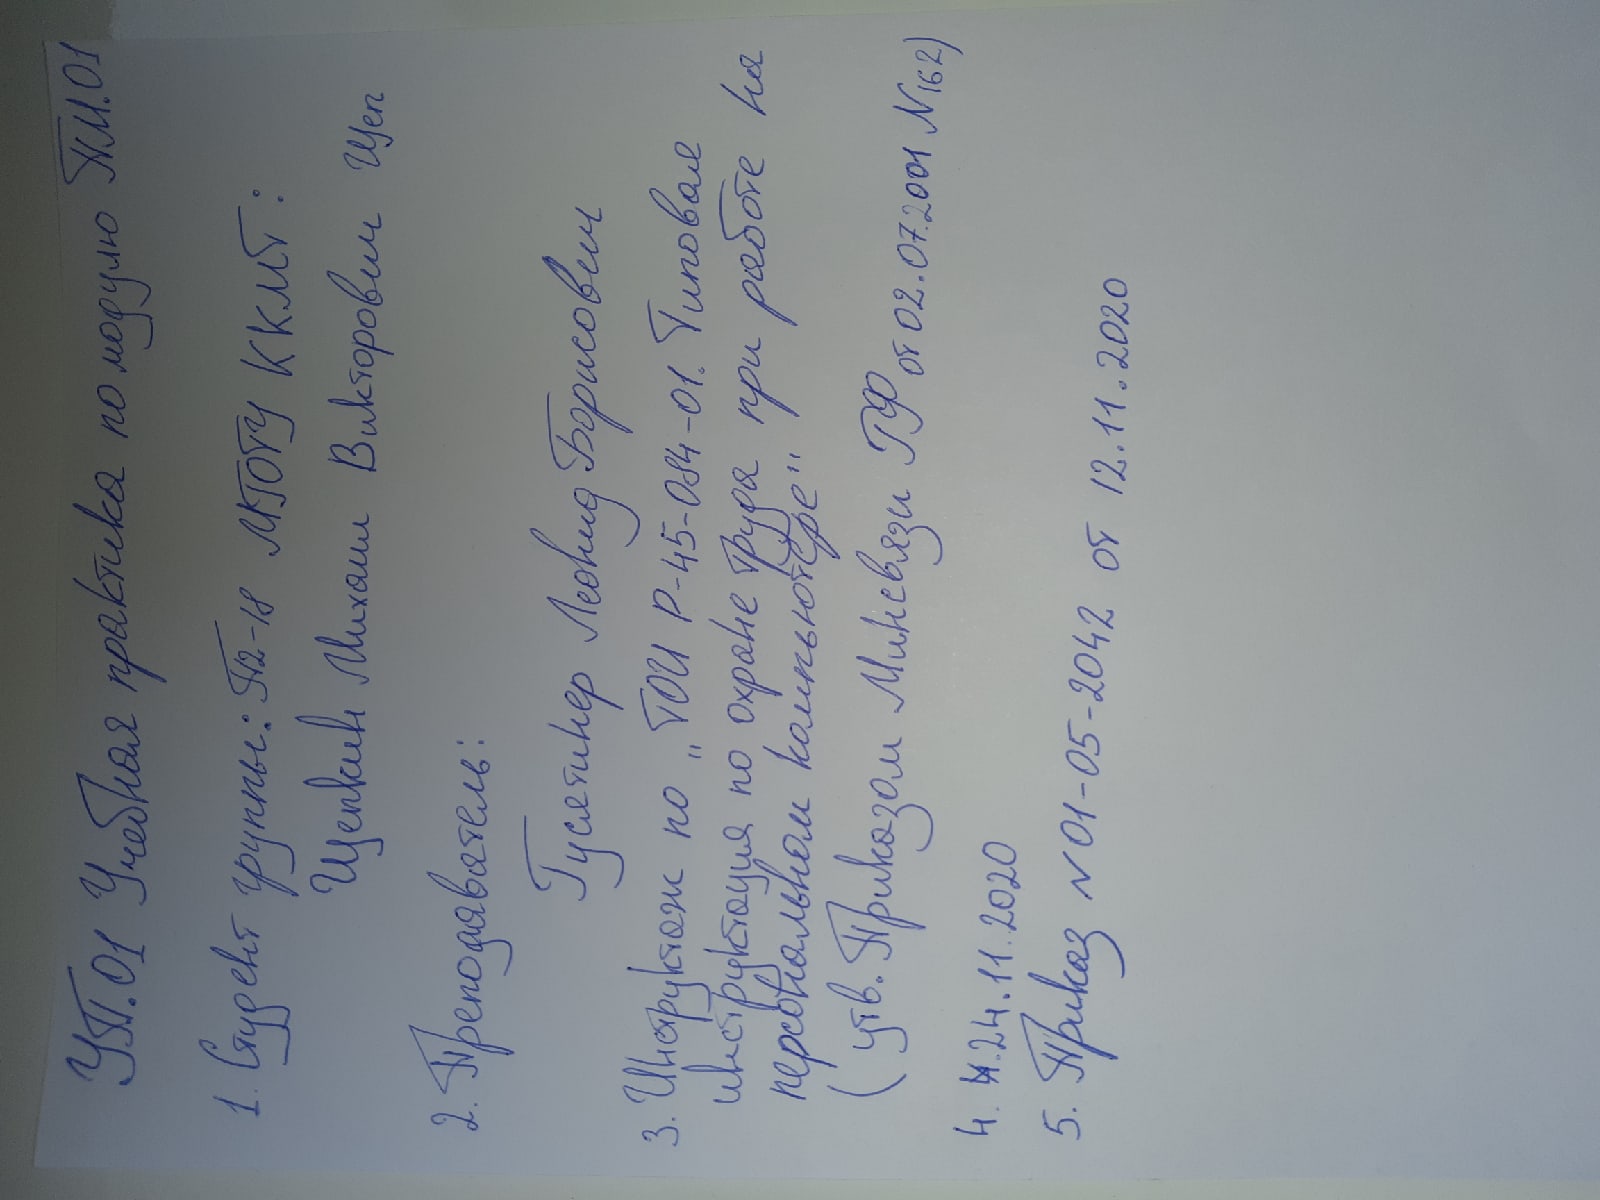 УП.01 Учебная практика по модулю ПМ.01
1. Студент группы: П2-18 МГОТУ ККМТ:
Щепкин Михаил Викторович Щеп
2. Преподаватель:
Гусятинер Леонид Борисович
3. Инструктаж по „ТОИ Р-45-084-01. Типовая
инструкция по охране труда при работе на
персональном компьютере"
(утв. Приказом Минсвязи РФ от 02.07.2001 N162)
4. 24.11.2020
5. Приказ N 01-05-2042 от 12.11.2020